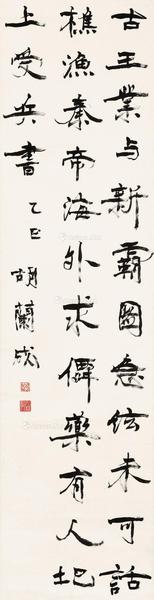 古王業与新霸圖急弦未可話
樵漁秦帝海外求僊藥有人圯
上受兵書 乙巳 胡蘭成